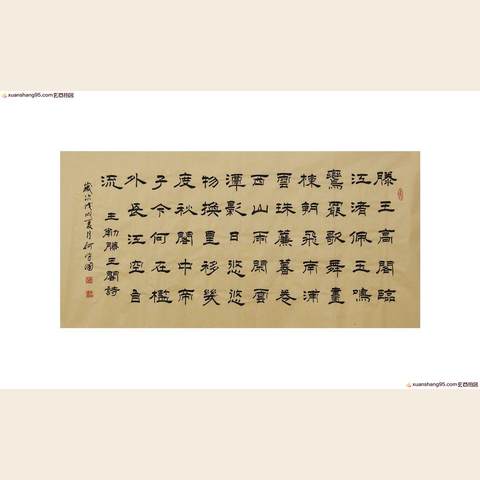 xuanshang95.com
滕王高閣臨
江渚佩玉鳴
鸞罷歌舞畫
棟朝飛南浦
雲珠簾暮卷
西山雨閑雲
潭影日悠悠
物換星移幾
度秋閣中帝
子今何在檻
外長江空自
流
王勃滕王閣詩
歲次戊戌夏月何
xuanshang95.com